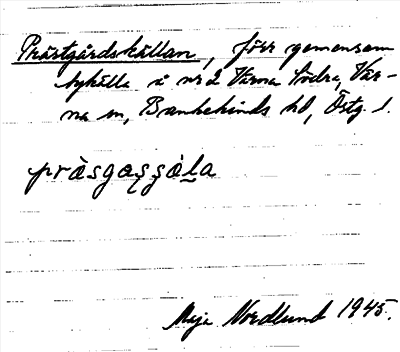 Prästgårdskällan, förr gemensam
bykälla å nr 2 Värna Södra, Vär-
na sn, Bankekinds hd, Östg. l.
pràsgaşşàla
Maja Nordlund 1945.